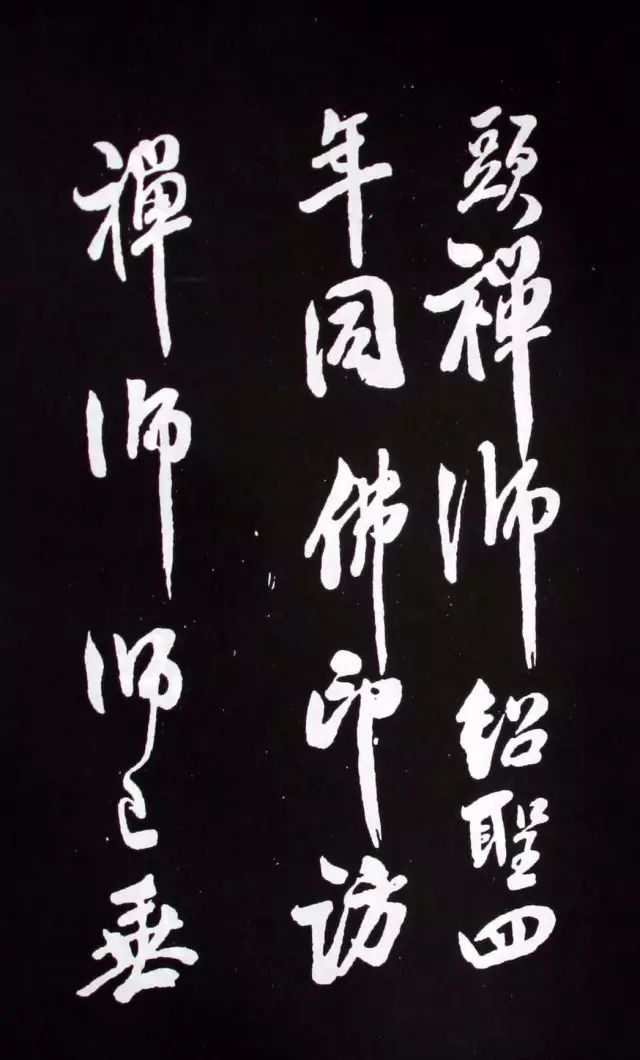 頭禪師紹聖四
年同佛印訪
禪師師已垂